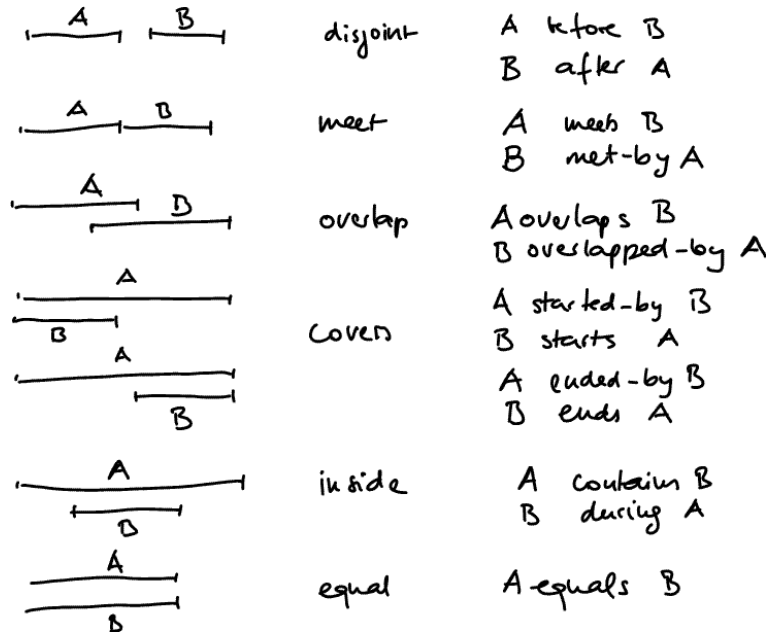 A B disjoint A before B
B after A
A B meet A meets B
B met-by A
A
B overlap A overlaps B
B overlapped-by A
A A started-by B
B covers B starts A
A A ended-by B
B B ends A
A inside A contains B
B B during A
A equal A equals B
B